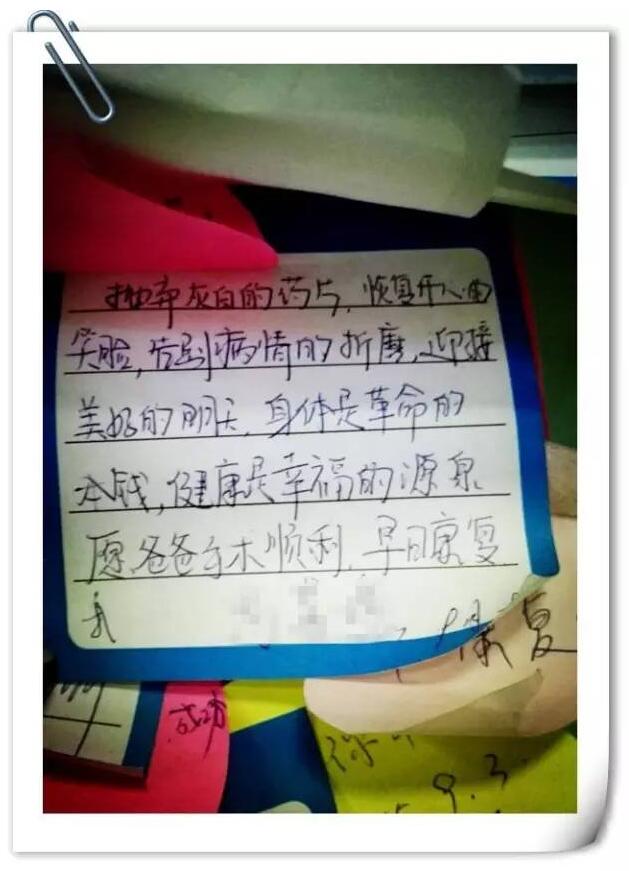 抛弃灰白的药片，恢复开心的
笑脸，告别病情的折磨，迎接
美好的明天，身体是革命的
本钱，健康是幸福的源泉
愿爸爸手术顺利，早日康复
康复
成功
9.3